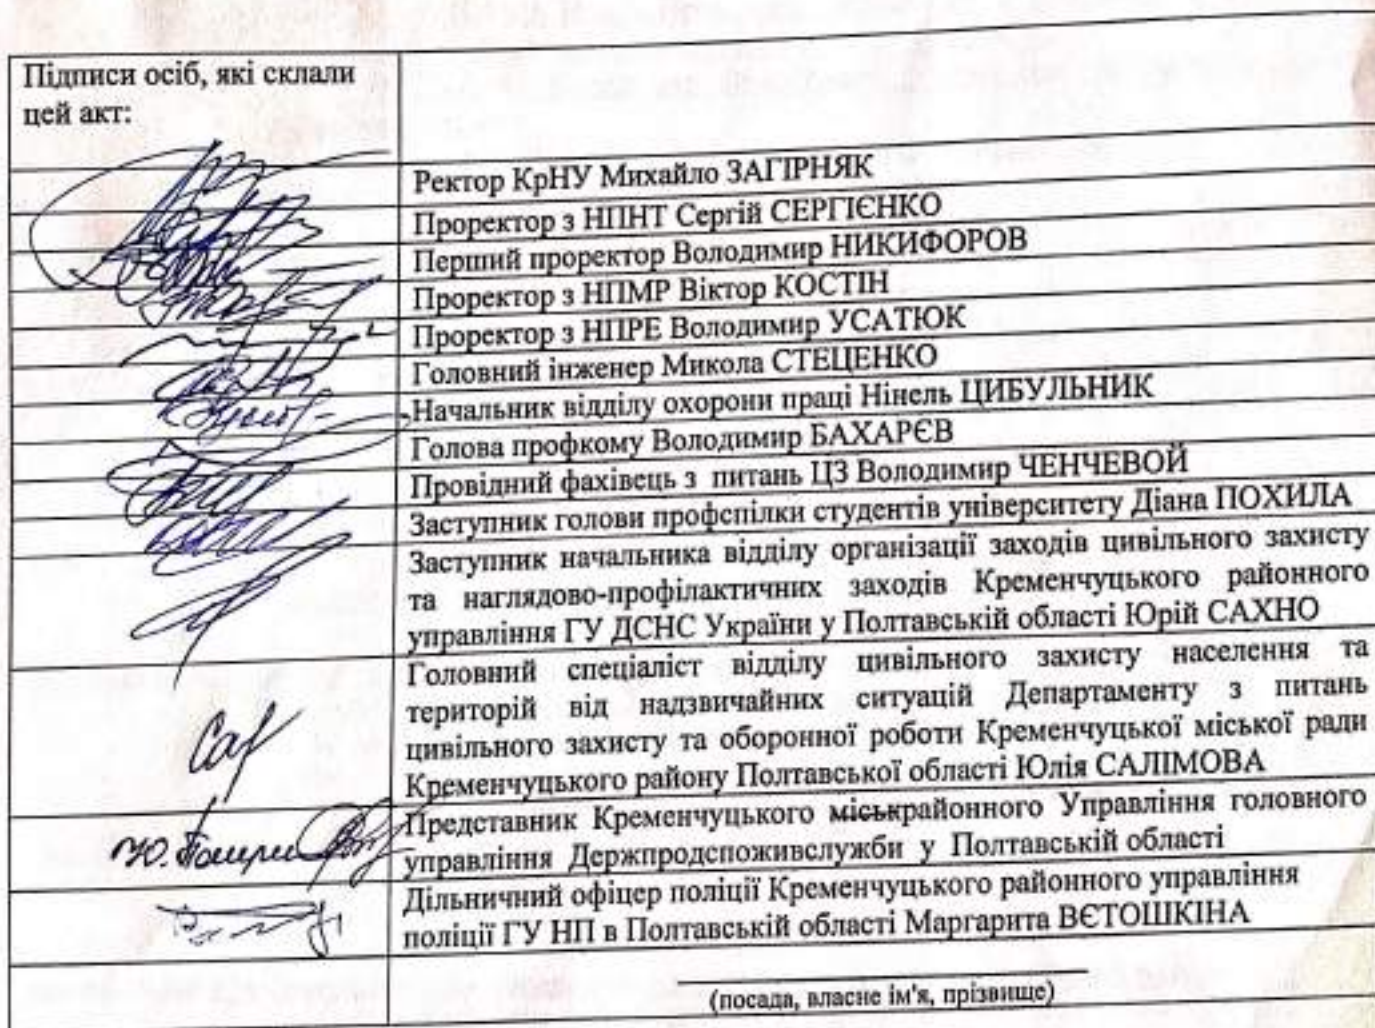 Підписи осіб, які склали
цей акт:
Ректор КрНУ Михайло ЗАГІРНЯК
Проректор з НПНТ Сергій СЕРГІЄНКО
Перший проректор Володимир НИКИФОРОВ
Проректор з НПМР Віктор КОСТІН
Проректор з НПРЕ Володимир УСАТЮК
Головний інженер Микола СТЕЦЕНКО
Начальник відділу охорони праці Нінель ЦИБУЛЬНИК
Голова профкому Володимир БАХАРЄВ
Провідний фахівець з питань ЦЗ Володимир ЧЕНЧЕВОЙ
Заступник голови профспілки студентів університету Діана ПОХИЛА
Заступник начальника відділу організації заходів цивільного захисту
та наглядово-профілактичних заходів Кременчуцького районного
управління ГУ ДСНС України у Полтавській області Юрій САХНО
Головний спеціаліст відділу цивільного захисту населення та
територій від надзвичайних ситуацій Департаменту з питань
цивільного захисту та оборонної роботи Кременчуцької міської ради
Кременчуцького району Полтавської області Юлія САЛІМОВА
Представник Кременчуцького міськрайонного Управління головного
управління Держпродспоживслужби у Полтавській області
Ю.
Дільничний офіцер поліції Кременчуцького районного управління
поліції ГУ НП в Полтавській області Маргарита ВЄТОШКІНА
(посада, власне ім'я, прізвище)